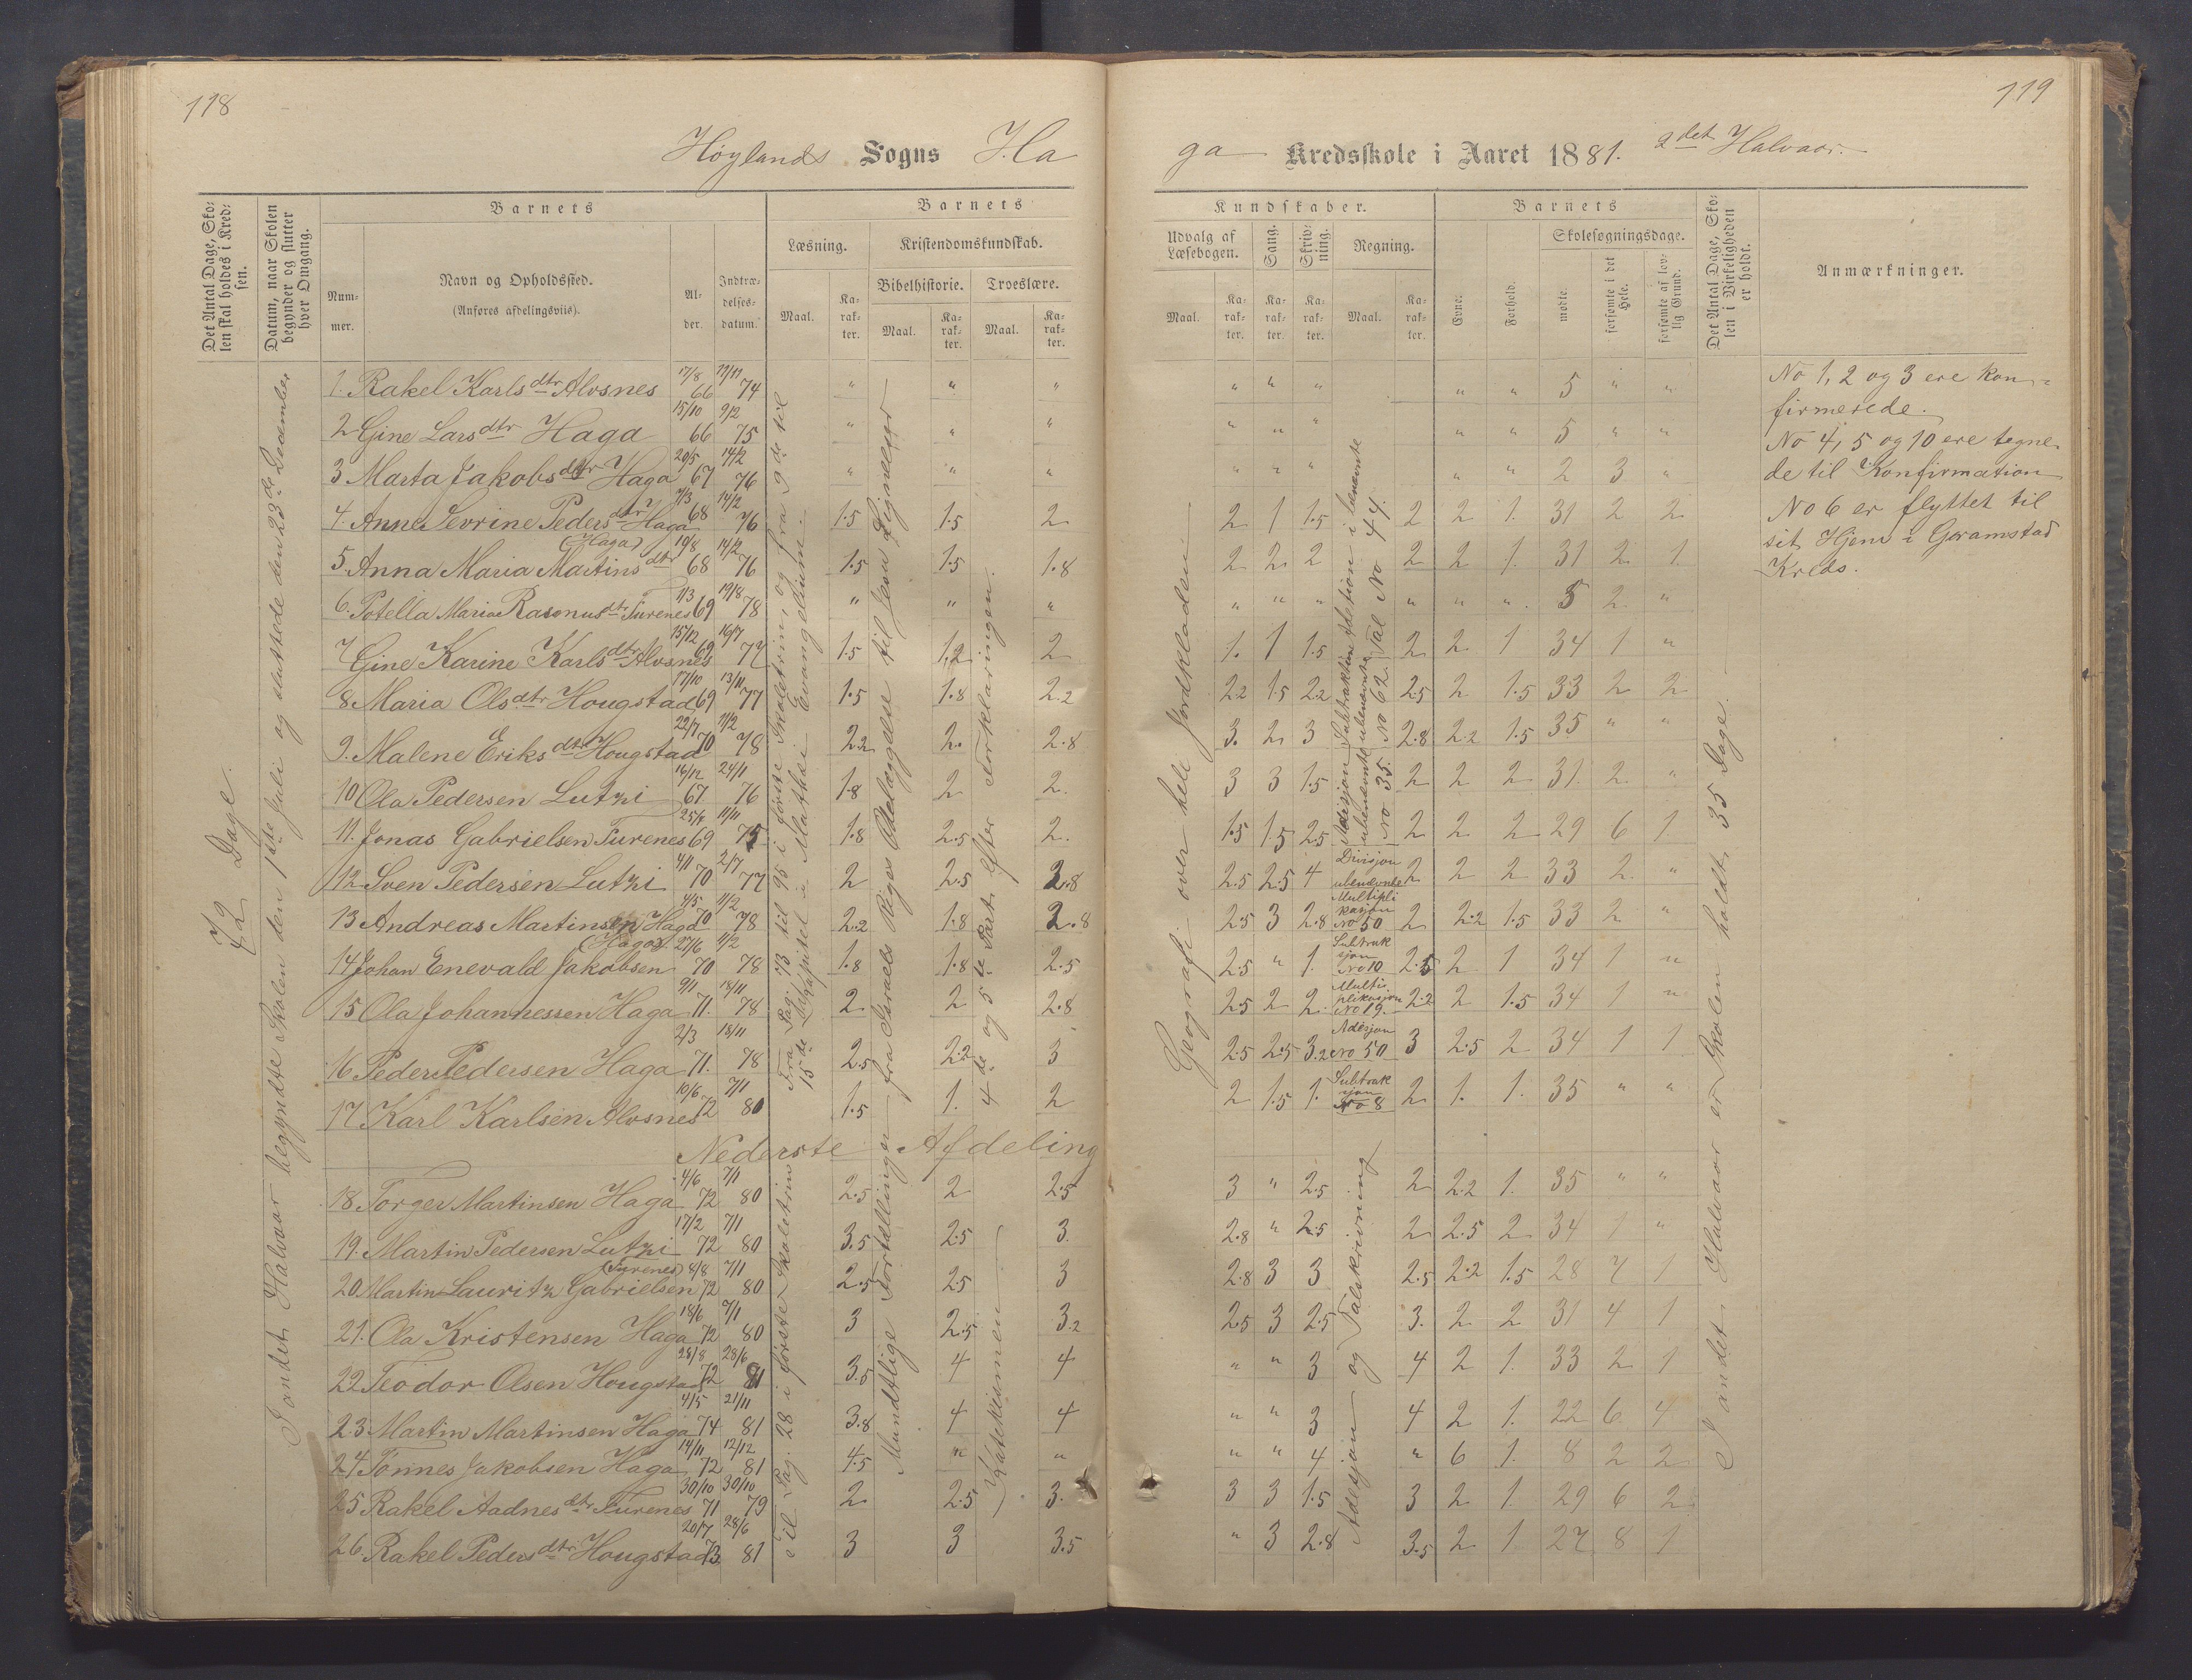 118
Høylands Sogns Ha
Det Antal Dage, Sko-
len skal holdes i Kred-
sen.
Datum, naar Skolen
begynder og slutter
hver Omgang.
Barnets
Barnets
Num-
mer.
Navn og Opholdssted.
(Anføres afdelingsviis).
Al-
der.
Indtræ-
delses-
datum.
Læsning.
Kristendomskundskab.
Maal.
Ka-
rak-
ter.
Bibelhistorie.
Troeslære.
Maal.
Ka-
rak-
ter.
Maal.
Ka-
rak-
ter.
42 Dage.
I andet Halvaar begyndte Skolen den 1ste Juli og sluttede den 23de December
1. Rakel Karlsdtr Alvsnes 17/8 66 19/11 74 " " "
2 Gine Larsdtr Haga 15/10 66 9/2 75 " " "
3 Marta Jakobsdtr Haga 20/5 67 14/2 76 " " "
4. Anne Sevrine Pedersdtr Haga 7/3 68 14/2 76 1.5 1.5 2
5. Anna Maria Martinsdtr (Haga) 19/8 68 14/2 76 1.5 1.5 1.8
6. Potella Maria Rasmusdtr Turenes 1/3 69 19/8 78 " " "
7 Gine Karine Karlsdtr Alvsnes 15/12 69 16/7 77 1.5 1.2 2
8 Maria Olsdtr Hougstad 17/10 69 13/11 77 1.5 1.8 2.2
9. Malene Eriksdtr Hougstad 22/7 70 11/2 78 2.2 2. 2.8
10 Ola Pedersen Lutzi 16/12 67. 24/11 76 1.8 2 2.
11. Jonas Gabrielsen Turenes 69 11/11 75 1.8 2.5 2.
12 Sven Pedersen Lutzi 4/11 70 2/7 77 2 2.5 2.8
13 Andreas Martinsen Haga 4/5 70 11/2 78 2.2 1.8 2.8
14 Johan Enevald Jakobsen (Haga) 27/6 70 11/2 78 1.8 1.8 2.5
15 Ola Johannessen Haga 9/1 71. 18/11 78 2. 2 2.8
16 Peder Pedersen Haga 2/3 71. 18/11 78 2.5 2.2 3
17 Karl Karlsen Alvsnes 10/6 72 7/1 80 1.5 1. 2
Nederste Afdeling
18 Torger Martinsen Haga 4/6 72 7/1 80 2.5 2 2.5
19. Martin Pedersen Lutzi 17/2 72 7/1 80 3.5 2.5 3.
20 Martin Lauritz Gabrielsen (Turenes) 4/8 72 7/1 80 2.5 2.5 3
21. Ola Kristensen Haga 18/6 72 7/1 80 3 2.5 3.2
22 Teodor Olsen Hougstad 28/8 72 28/6 81 3.5 4 4
23. Martin Martinsen Haga 4/5 74 21/11 81 3.8 4 4
24 Tønnes Jakobsen Haga 14/11 72 12/12 81 4.5 " "
25 Rakel Aadnesdtr Turenes 30/10 71 30/10 79 2 2.5 3.
26. Rakel Pedersdtr Hougstad 20/7 73 28/6 81 3 3 3.5
Fra Pag. 73 til 95 i første Skoletrin, og fra 9de til
15de Kapitel i Mathæi Evangelium.
til Pag. 28 i første Skoletrin
fra Israels Riges Ødelæggelse til Jesu Lignelser
Mundtlige Fortællinger
4de og 5te Part efter Forklaringen.
Katekismen
119
ga Kredsskole i Aaret 1881. 2det Halvaar.
Kundskaber.
Barnets
Udvalg af
Læsebogen.
Sang.
Skriv-
ning.
Regning.
Maal.
Ka-
rak-
ter.
Ka-
rak-
ter.
Ka-
rak-
ter.
Maal.
Ka-
rak-
ter.
Evner.
Forhold.
Skolesøgningsdage.
mødte.
forsømte i det
Hele.
forsømte af lov-
lig Grund.
Det Antal Dage, Sko-
len i Virkeligheden
er holdt.
Anmærkninger.
Geografi over hele Jordkloden
" " " " " 5 " "
" " " " " 5 " "
" " " " " 2 3 "
2 1 1.5 2 2 1. 31 2 2
2 2 2 2 2 1. 31 2 1
" " " " " " 5 2 "
1. 1 1.5 2 2 1 34 1 "
2.2 1.5 2.2 2.5 2 1.5 33 2 2
3. 2 3 2.8 2.2 1.5 35 " "
3 3 1.5 2 2 2 31. 2. "
1.5 1.5 2.5 2 2 2 29 6 1
2.5 2.5 4 Divisjon ubenævnte 2 2 2 33 2. "
2.5 3 2.8 Multipli kasjon No 50 2 2.2 1.5 33 2 "
2.5 " 1. Subtrak sjon No 10 2.5 2 1 34 1 "
2.5 2 2. Multi plikasjon No 19. 2.2 2 1.5 34 1 "
2.5 2.5 3.2 Adisjon No 50 3 2.5 2 34 1 1
2 1.5 1. Subtrak sjon No 8 2 1. 1. 35 " "
3 " 2.5 2 2.2 1. 35 " "
2.8 " 2.5 2 2.5 2 34 1 "
2.8 3 3 2.5 2.2 1.5 28 7 1
2.5 3 2.5 3. 2 2 31 4 1
" " 3 4 2 1. 33 2 1
" " 3 4 2 1. 22 6. 4
" " 4 " 6 1. 8 2 2
3 3 1.5 3 2 1. 29 6 2
" 3 2.8 3.5 2 1 27 8 1
Adisjon Subtraktion Adetion i benævnte
ubenævnte ubenævnte Tal No 44.
No 35. No 62.
Adesjon og Talskrivning
I andet Halvaar er Skolen holdt 35 Dage.
No 1, 2 og 3 ere kon-
firmerede.
No 4, 5 og 10 ere tegne-
de til Konfirmation
No 6 er flyttet til
sit Hjem i Gramstad
Kreds.